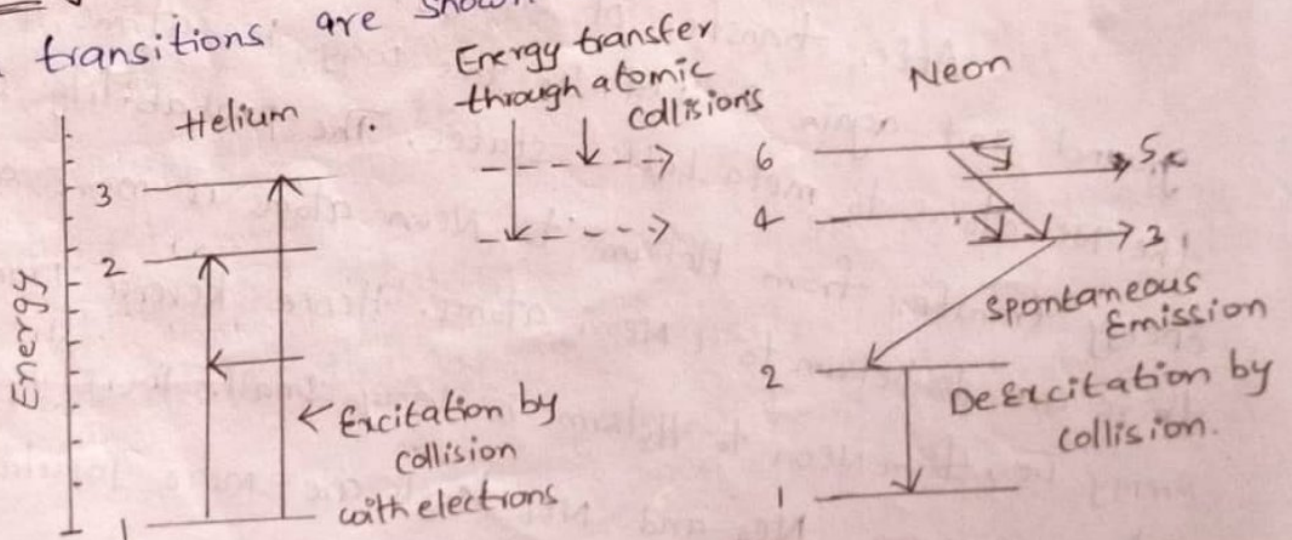 transitions are shown
Energy transfer
through atomic
collisions
Helium
Neon
Energy
3
2
1
Excitation by
collision
with electrons
6
5
4
3
spontaneous
Emission
2
DeExcitation by
collision.
1